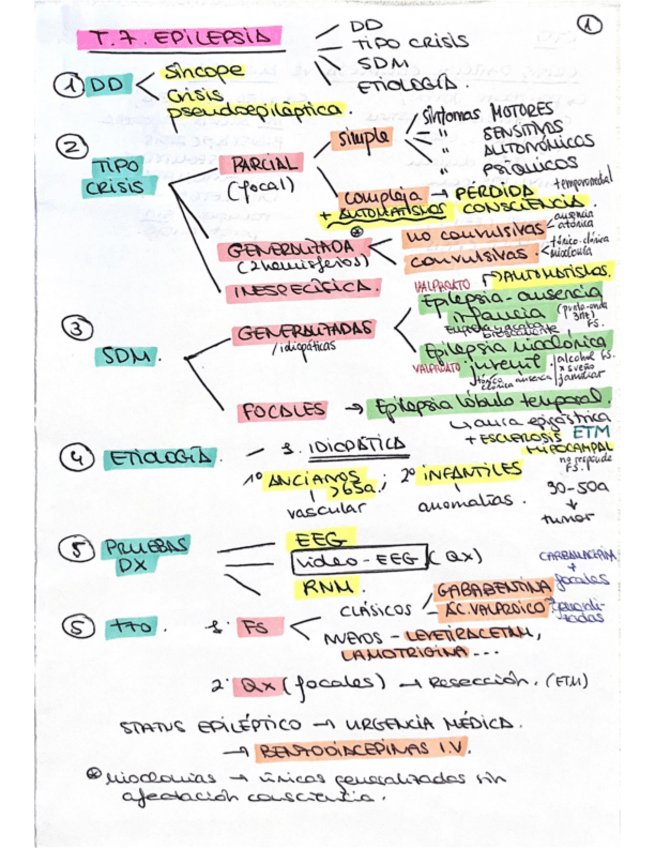 ①
T.7. EPILEPSIA
DD
TIPO CRISIS
SDM
ETIOLOGÍA.
① DD
Síncope
Crisis
pseudoepiléptica.
②
TIPO
CRISIS
PARCIAL
(focal)
simple
Síntomas MOTORES
" SENSITIVOS
" AUTONÓMICOS
" PSÍQUICOS
compleja → PÉRDIDA
CONSCIENCIA.
temporomedial
+ AUTOMATISMOS
GENERALIZADA
(2 hemisferios)
no convulsivas
ausencia
atónica
convulsivas
tónico-clónica
mioclonía
INESPECÍFICA.
③
SDM.
GENERALIZADAS
/idiopáticas
VALPROATO
→ AUTOMATISMOS.
Epilepsia-ausencia
infancia
(punta-onda
3Hz)
FS.
Epilepsia mioclónica
VALPROATO
juvenil
tónico
clónica
ausencia
alcohol FS.
x sueño
familiar
FOCALES → Epilepsia lóbulo temporal.
↳ aura epigástrica
+ ESCLEROSIS ETM
HIPOCAMPAL
no responde
FS.!
④ ETIOLOGÍA. - 1. IDIOPÁTICA
1º ANCIANOS ; 2º INFANTILES
>65a.
vascular
anomalías.
30-50a
↓
tumor
⑤ PRUEBAS
DX
EEG
video-EEG (Qx)
RNM.
⑤ TTO.
1. FS
CLÁSICOS
GABAPENTINA
ÁC. VALPROICO
CARBAMACEPINA
+
focales
NUEVOS - LEVETIRACETAM,
LAMOTRIGINA...
2. Qx (focales) → Resección. (ETM)
STATUS EPILÉPTICO → URGENCIA MÉDICA.
→ BENZODIACEPINAS I.V.
* Mioclonias → únicas generalizadas sin
afectación consciencia.